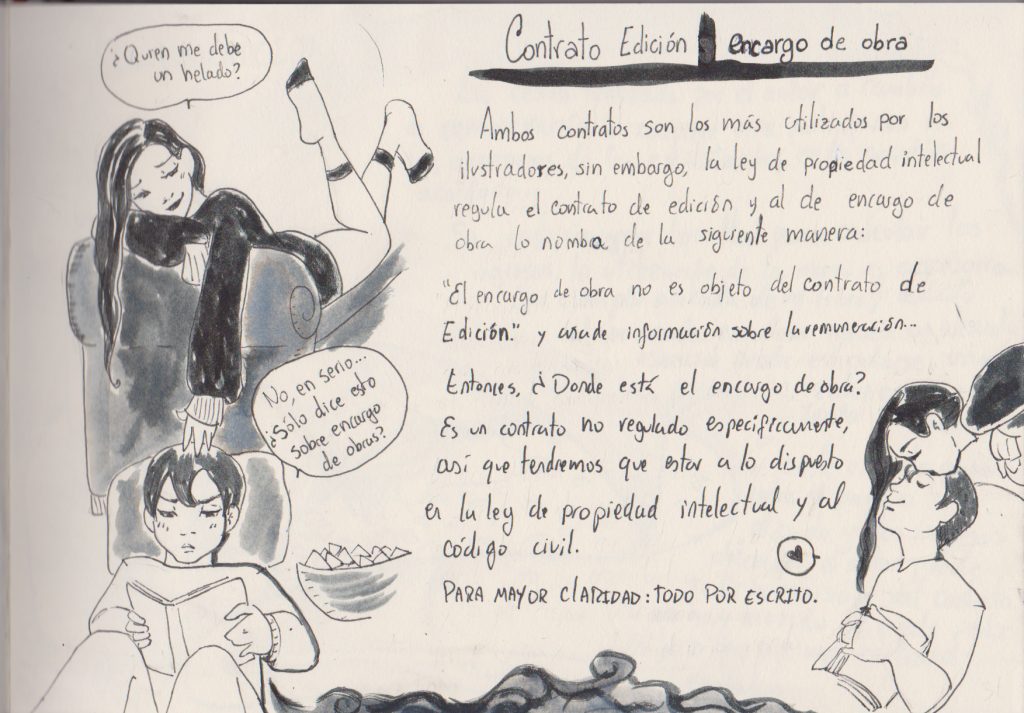 ¿Quien me debe
un helado?
Contrato Edición encargo de obra
Ambos contratos son los más utilizados por los
ilustradores, sin embargo, la ley de propiedad intelectual
regula el contrato de edición y al de encargo de
obra lo nombra de la siguiente manera:
"El encargo de obra no es objeto del contrato de
Edición." y añade información sobre la remuneración...
No, en serio...
¿Sólo dice esto
sobre encargo
de obras?
Entonces, ¿Donde está el encargo de obra?
Es un contrato no regulado específicamente,
así que tendremos que estar a lo dispuesto
en la ley de propiedad intelectual y al
código civil.
PARA MAYOR CLARIDAD: TODO POR ESCRITO.